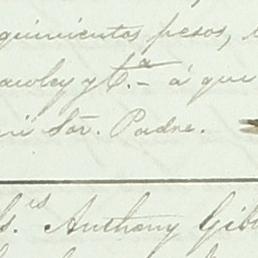 quinientos pesos,
awley y C.ª á qu
mi Sor. Padre.
S.is Anthony Gib